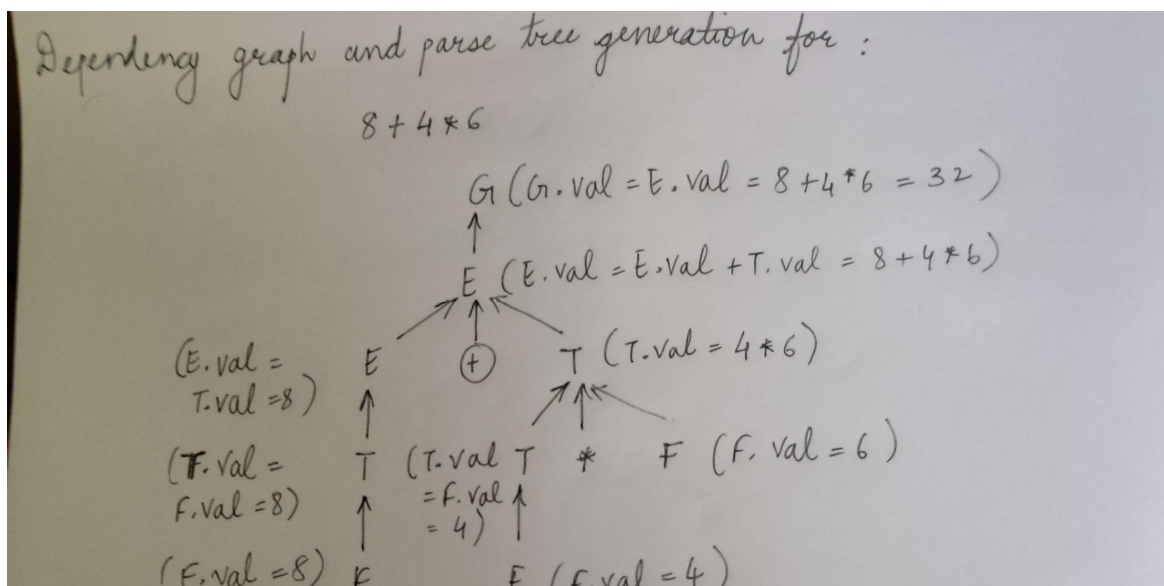 Dependency graph and parse tree generation for :
8 + 4 * 6
G (G.val = E.val = 8 + 4 * 6 = 32)
E (E.val = E.val + T.val = 8 + 4 * 6)
(E.val = T.val = 8) E + T (T.val = 4 * 6)
(T.val = F.val = 8) T (T.val = F.val = 4) T * F (F.val = 6)
(F.val = 8) F F (F.val = 4)